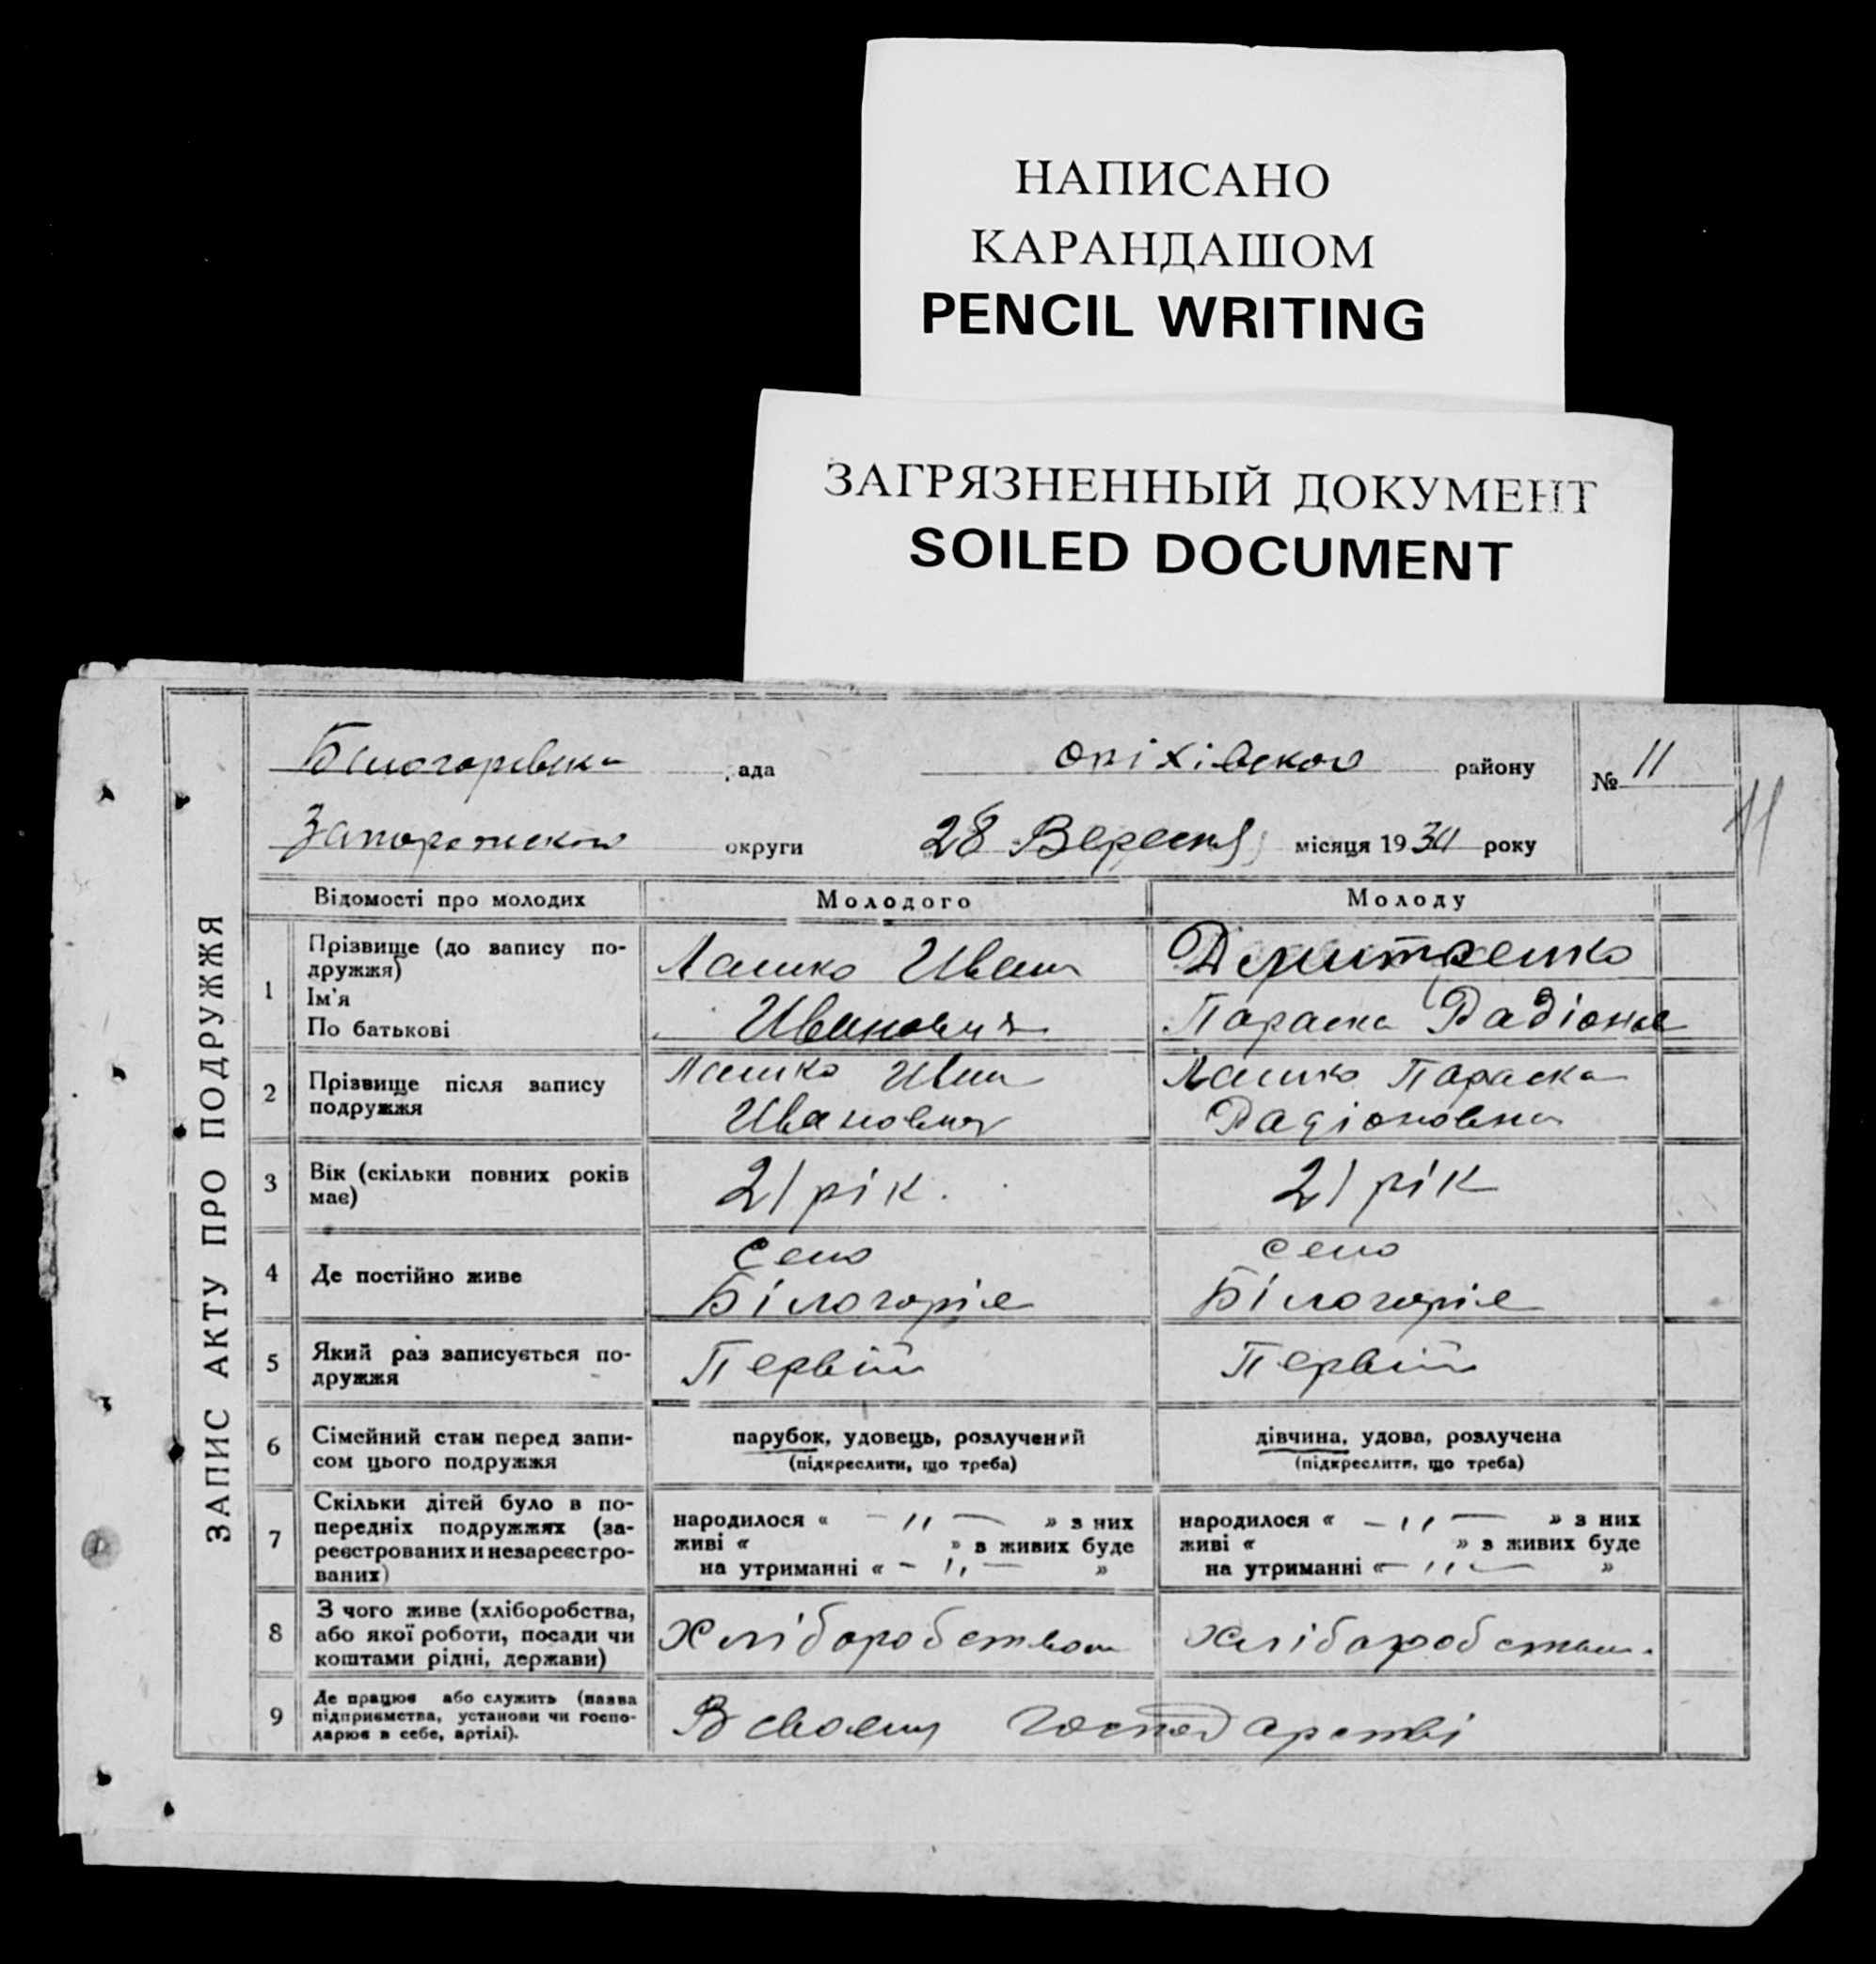 НАПИСАНО
КАРАНДАШОМ
PENCIL WRITING
ЗАГРЯЗНЕННЫЙ ДОКУМЕНТ
SOILED DOCUMENT
ЗАПИС АКТУ ПРО ПОДРУЖЖЯ
ада Оріхівского району № 11
округи 28 Вересня місяця 1930 року
11
Відомості про молодих Молодого Молоду
1 Прізвище (до запису по-
дружжя)
Ім'я
По батькові
Лашко Иван
Иванович
Параска
2 Прізвище після запису
подружжя
Лашко Иван
Иванович
Лашко Параска
Радіоновна
3 Вік (скільки повних років
має)
21 рік.
21 рік
4 Де постійно живе
Село
Білогоріе
село
Білогоріе
5 Який раз записується по-
дружжя
Первій
Первій
6 Сімейний стан перед запи-
сом цього подружжя
парубок, удовець, розлучений
(підкреслити, що треба)
дівчина, удова, розлучена
(підкреслити, що треба)
7 Скільки дітей було в по-
передніх подружжях (за-
реєстрованих и незареєстро-
ваних)
народилося « — " — » з них
живі « » в живих буде
на утриманні « — " — »
народилося « — " — » з них
живі « » в живих буде
на утриманні « — " — »
8 З чого живе (хліборобства,
або якої роботи, посади чи
коштами рідні, держави)
Хліборобством
хліборобством.
9 Де працює або служить (назва
підприємства, установи чи госпо-
дарює в себе, артілі).
В своєму господарстві